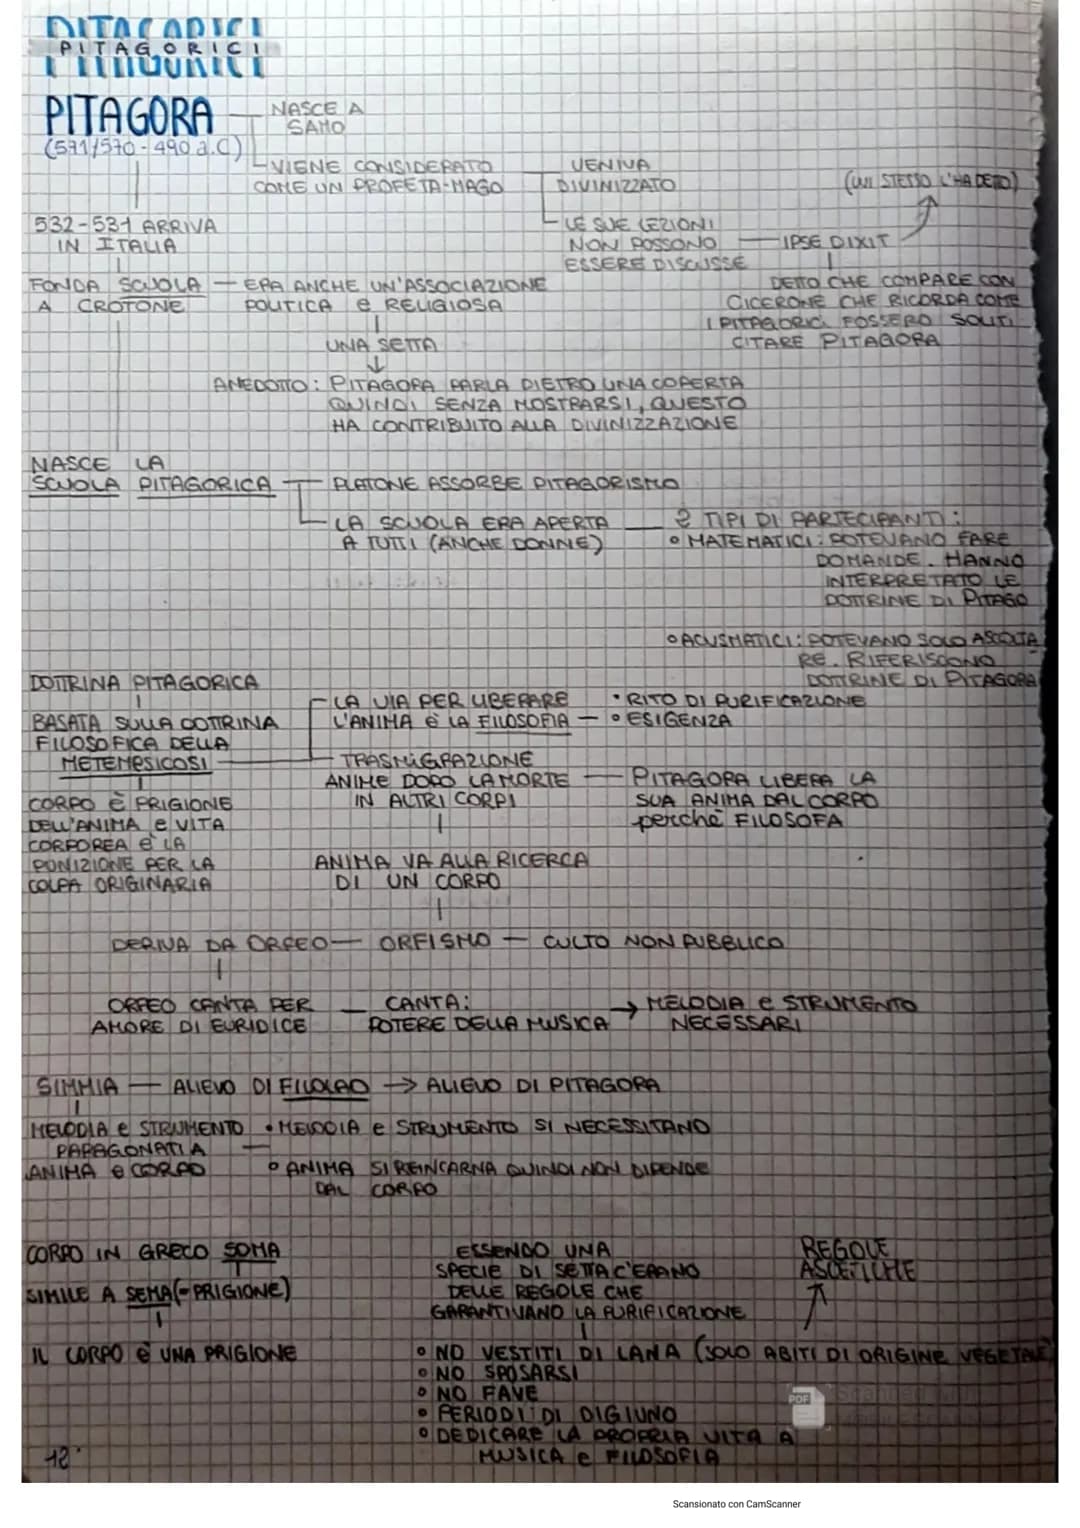 PITAGORICI
PITAGORICI
PITAGORA
(571/570-490 a.C)
NASCE A
SAMO
VIENE CONSIDERATO
COME UN PROFETA-MAGO
VENIVA
DIVINIZZATO
(LUI STESSO L'HA DETTO)
LE SUE LEZIONI
NON POSSONO
ESSERE DISCUSSE
IPSE DIXIT
DETTO CHE COMPARE CON
CICERONE CHE RICORDA COME
I PITAGORICI FOSSERO SOLITI
CITARE PITAGORA
532-531 ARRIVA
IN ITALIA
FONDA SCUOLA
A CROTONE
ERA ANCHE UN'ASSOCIAZIONE
POLITICA e RELIGIOSA
UNA SETTA
ANEDOTTO: PITAGORA PARLA DIETRO UNA COPERTA
QUINDI SENZA MOSTRARSI, QUESTO
HA CONTRIBUITO ALLA DIVINIZZAZIONE
NASCE LA
SCUOLA PITAGORICA
PLATONE ASSORBE PITAGORISMO
LA SCUOLA ERA APERTA
A TUTTI (ANCHE DONNE)
2 TIPI DI PARTECIPANTI:
• MATEMATICI: POTEVANO FARE
DOMANDE. HANNO
INTERPRETATO LE
DOTTRINE DI PITAGO
• ACUSMATICI: POTEVANO SOLO ASCOLTA
RE. RIFERISCONO
DOTTRINE DI PITAGORA
DOTTRINA PITAGORICA
BASATA SULLA DOTTRINA
FILOSOFICA DELLA
METEMPSICOSI
LA VIA PER LIBERARE
L'ANIMA è LA FILOSOFIA
• RITO DI PURIFICAZIONE
• ESIGENZA
TRASMIGRAZIONE
ANIME DOPO LA MORTE
IN ALTRI CORPI
PITAGORA LIBERA LA
SUA ANIMA DAL CORPO
perchè FILOSOFA
CORPO È PRIGIONE
DELL'ANIMA e VITA
CORPOREA è LA
PUNIZIONE PER LA
COLPA ORIGINARIA
ANIMA VA ALLA RICERCA
DI UN CORPO
DERIVA DA ORFEO — ORFISMO — CULTO NON PUBBLICO
ORFEO CANTA PER
AMORE DI EURIDICE
CANTA:
POTERE DELLA MUSICA
→ MELODIA e STRUMENTO
NECESSARI
SIMMIA — ALIEVO DI FILOLAO → ALIEVO DI PITAGORA
MELODIA e STRUMENTO
PARAGONATI A
ANIMA e CORPO
• MELODIA e STRUMENTO SI NECESSITANO
• ANIMA SI REINCARNA QUINDI NON DIPENDE
DAL CORPO
CORPO IN GRECO SOMA
SIMILE A SEMA (=PRIGIONE)
IL CORPO è UNA PRIGIONE
ESSENDO UNA
SPECIE DI SETTA C'ERANO
DELLE REGOLE CHE
GARANTIVANO LA PURIFICAZIONE
REGOLE
ASCETICHE
• NO VESTITI DI LANA (SOLO ABITI DI ORIGINE VEGETALE)
• NO SPOSARSI
• NO FAVE
• PERIODI DI DIGIUNO
• DEDICARE LA PROPRIA VITA A
MUSICA e FILOSOFIA
PDF
12
Scansionato con CamScanner